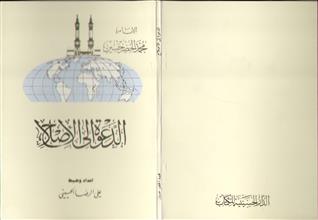 الإمام
محمد الخضر حسين
الدعوة إلى الإصلاح
إعداد وضبط
علي الرضا الحسيني
الدار الحسينية للكتاب